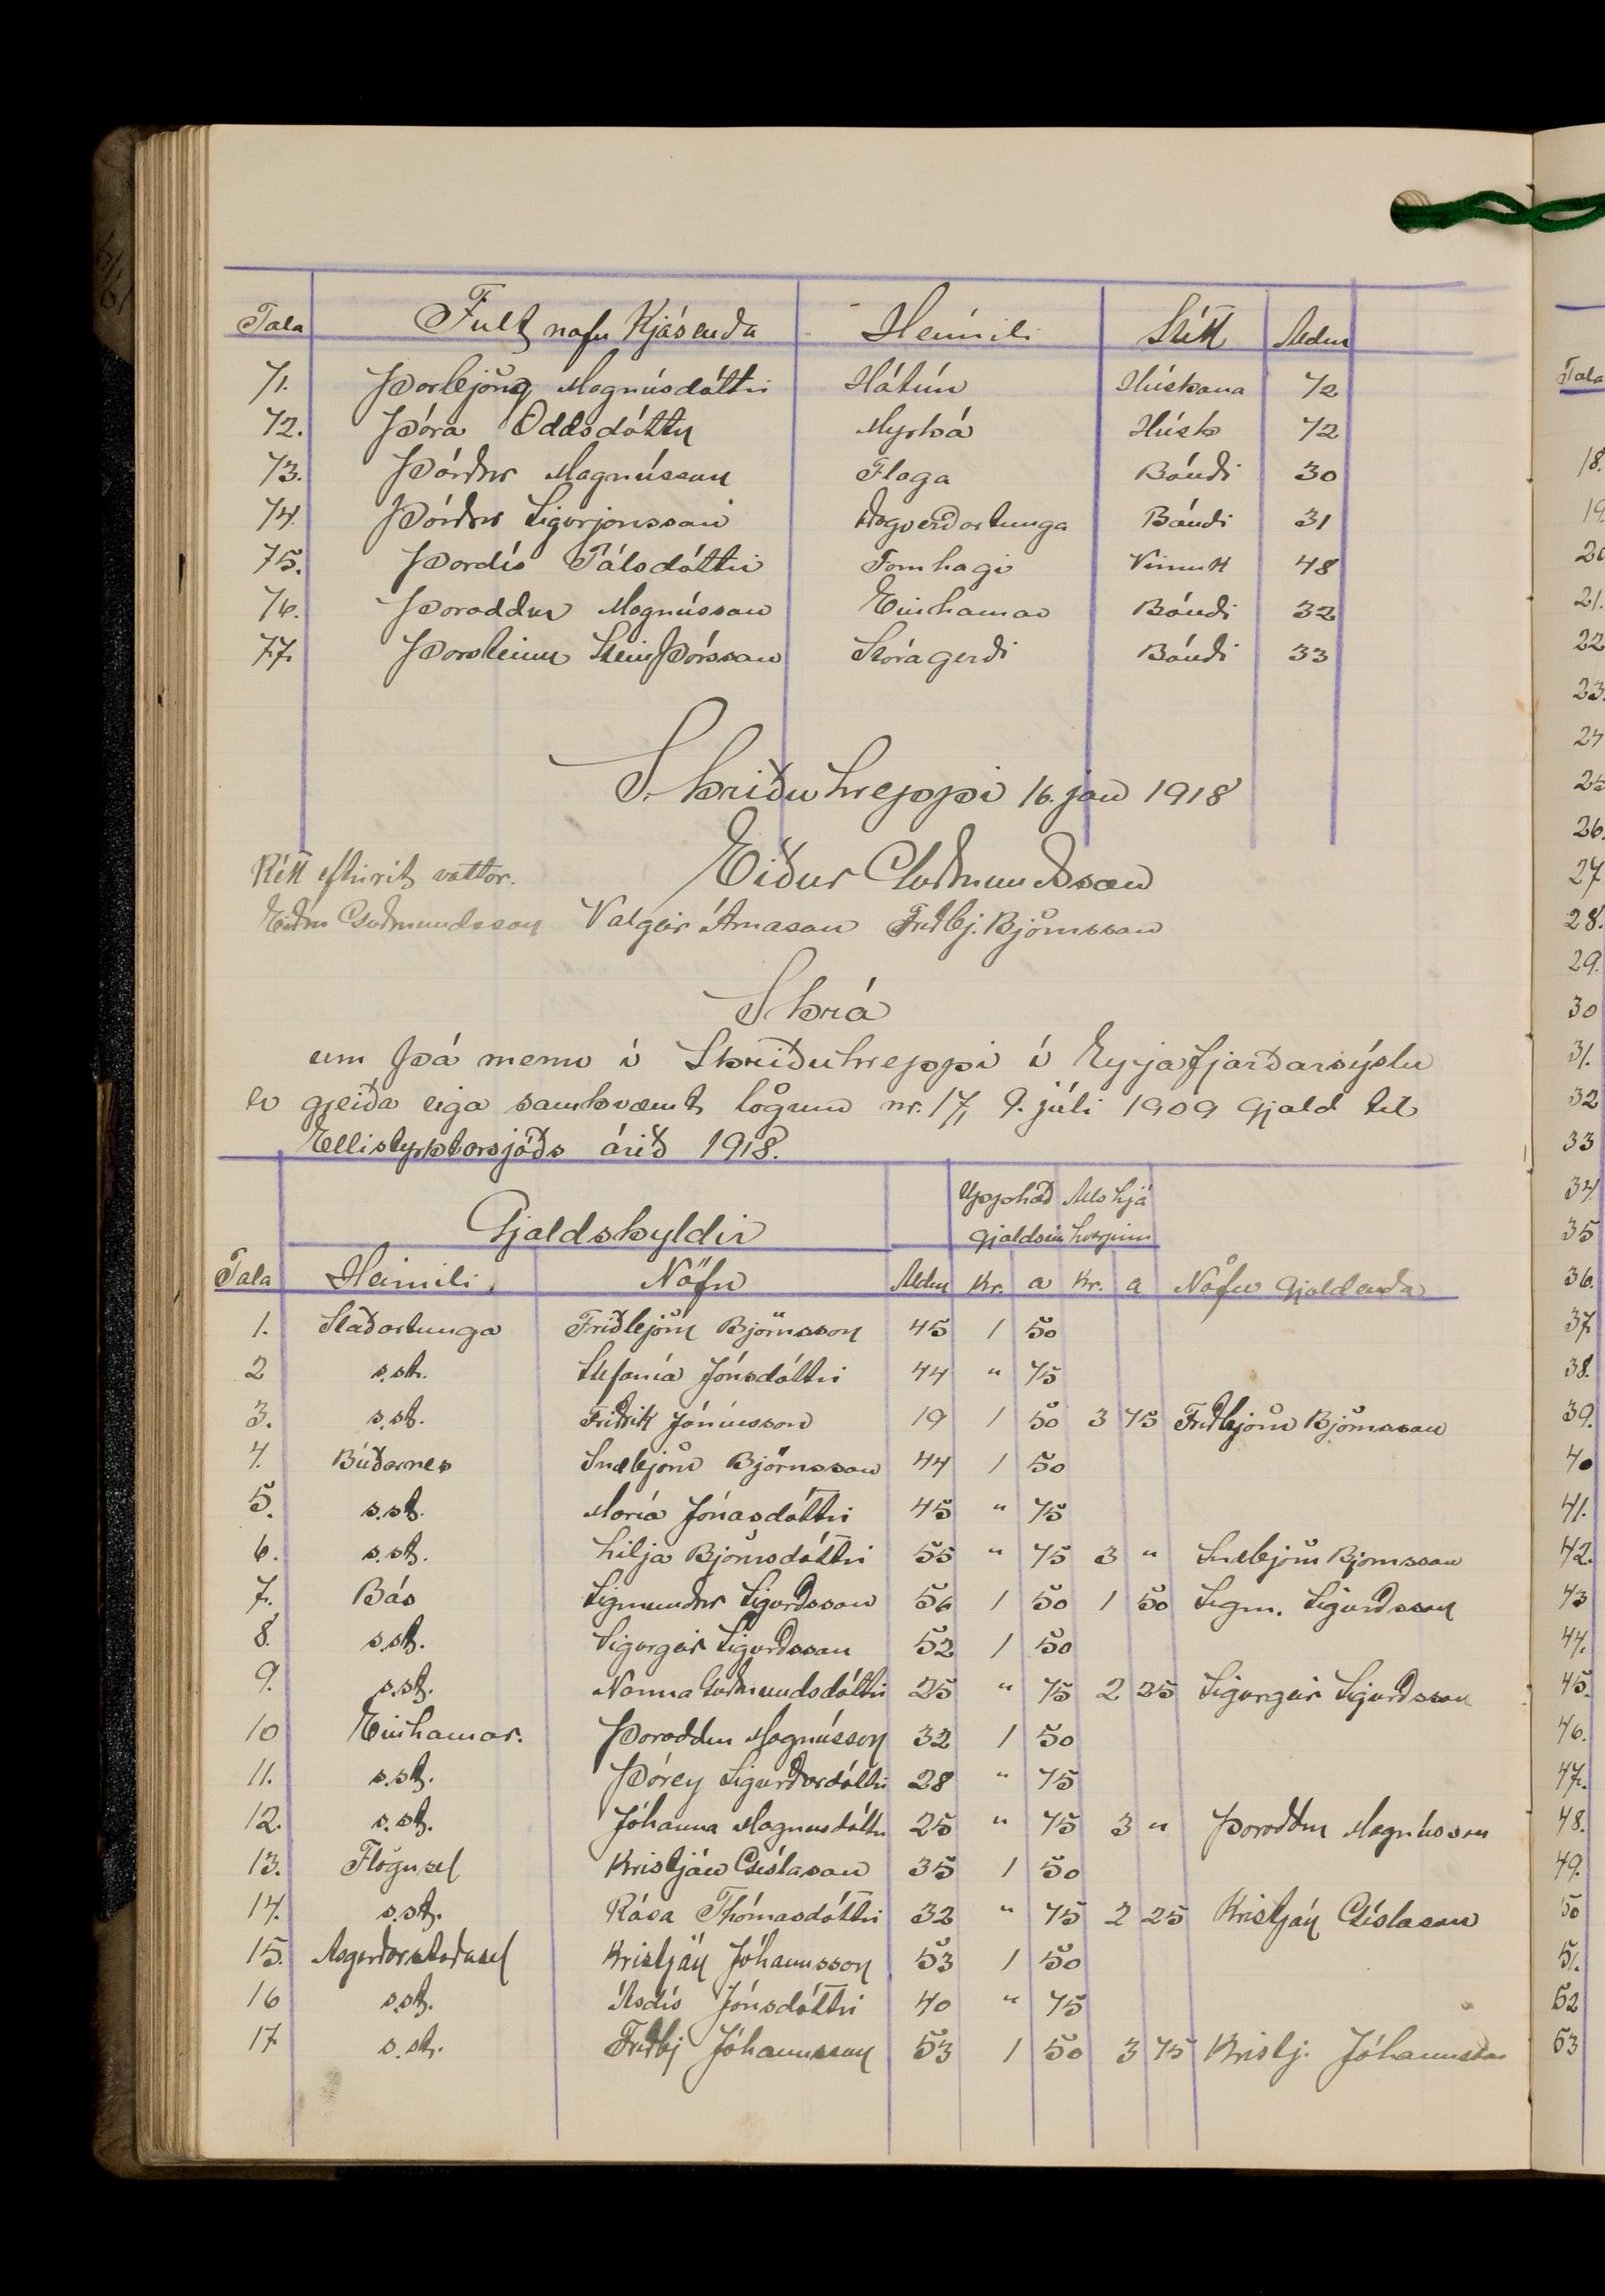 Tala Fult nafn Kjósenda Heimili Stétt Aldur
71. Þorbjörg Magnúsdóttir Hátún Húskona 72
72. Þóra Oddsdóttir Myrká Húsk 72
73. Þórður Magnússon Flaga Bóndi 30
74. Þórður Sigurjónsson Dagverðartunga Bóndi 31
75. Þordís Pálsdóttir Fornhagi Vinnuk 48
76. Þoroddur Magnússon Einhamar Bóndi 32
77. Þorsteinn SteinÞórsson Stóragerði Bóndi 33
Skriðuhreppi 16. jan 1918
Rétt eftirrit vottar. Eiður Guðmundsson
Eiður Guðmundsson Valgeir Árnason Friðbj. Björnsson
Skrá
um þá menn í Skriðuhreppi í Eyjafjarðarsýslu
er greiða eiga samkvæmt lögum nr. 17, 9. júli 1909 gjald til
Ellistyrktarsjóðs árið 1918.
Upphæð Alls hjá
Gjaldskyldir gjaldsin hverjum
Tala Heimili. Nöfn Aldur Kr. a Kr. a Nöfn Gjaldenda
1. Staðartunga Friðbjörn Björnsson 45 1 50
2 s.st. Stefanía Jónsdóttir 44 " 75
3. s.st. Friðrik Jónínusson 19 1 50 3 75 Friðbjörn Björnsson
4. Búðarnes Snæbjörn Björnsson 44 1 50
5. s.st. María Jónasdóttir 45 " 75
6. s.st. Lilja Björnsdóttir 55 " 75 3 " Snæbjörn Björnsson
7. Bás Sigmundur Sigurðsson 56 1 50 1 50 Sigm. Sigurðsson
8. s.st. Sigurgeir Sigurðsson 52 1 50
9. s.st. Nanna Guðmundsdóttir 25 " 75 2 25 Sigurgeir Sigurðsson
10 Einhamar. Þoroddur Magnússon 32 1 50
11. s.st. Þórey Sigurðardóttir 28 " 75
12. s.st. Jóhanna Magnusdóttir 25 " 75 3 " Þoroddur Magnússon
13. Flögusel Kristján Gíslason 35 1 50
14. s.st. Rósa Thómasdóttir 32 " 75 2 25 Kristján Gíslason
15. Asgerðarstaðasel Kristján Jóhannsson 53 1 50
16 s.st. Ásdís Jónsdóttir 40 " 75
17 s.st. Friðbj Jóhannsson 53 1 50 3 75 Kristj. Jóhannsson
Tala
18.
19
20
21.
22
23.
24
25
26.
27
28.
29.
30
31.
32
33
34
35
36.
37
38.
39.
40
41.
42.
43
44.
45.
46.
47.
48.
49.
50
51.
52
53